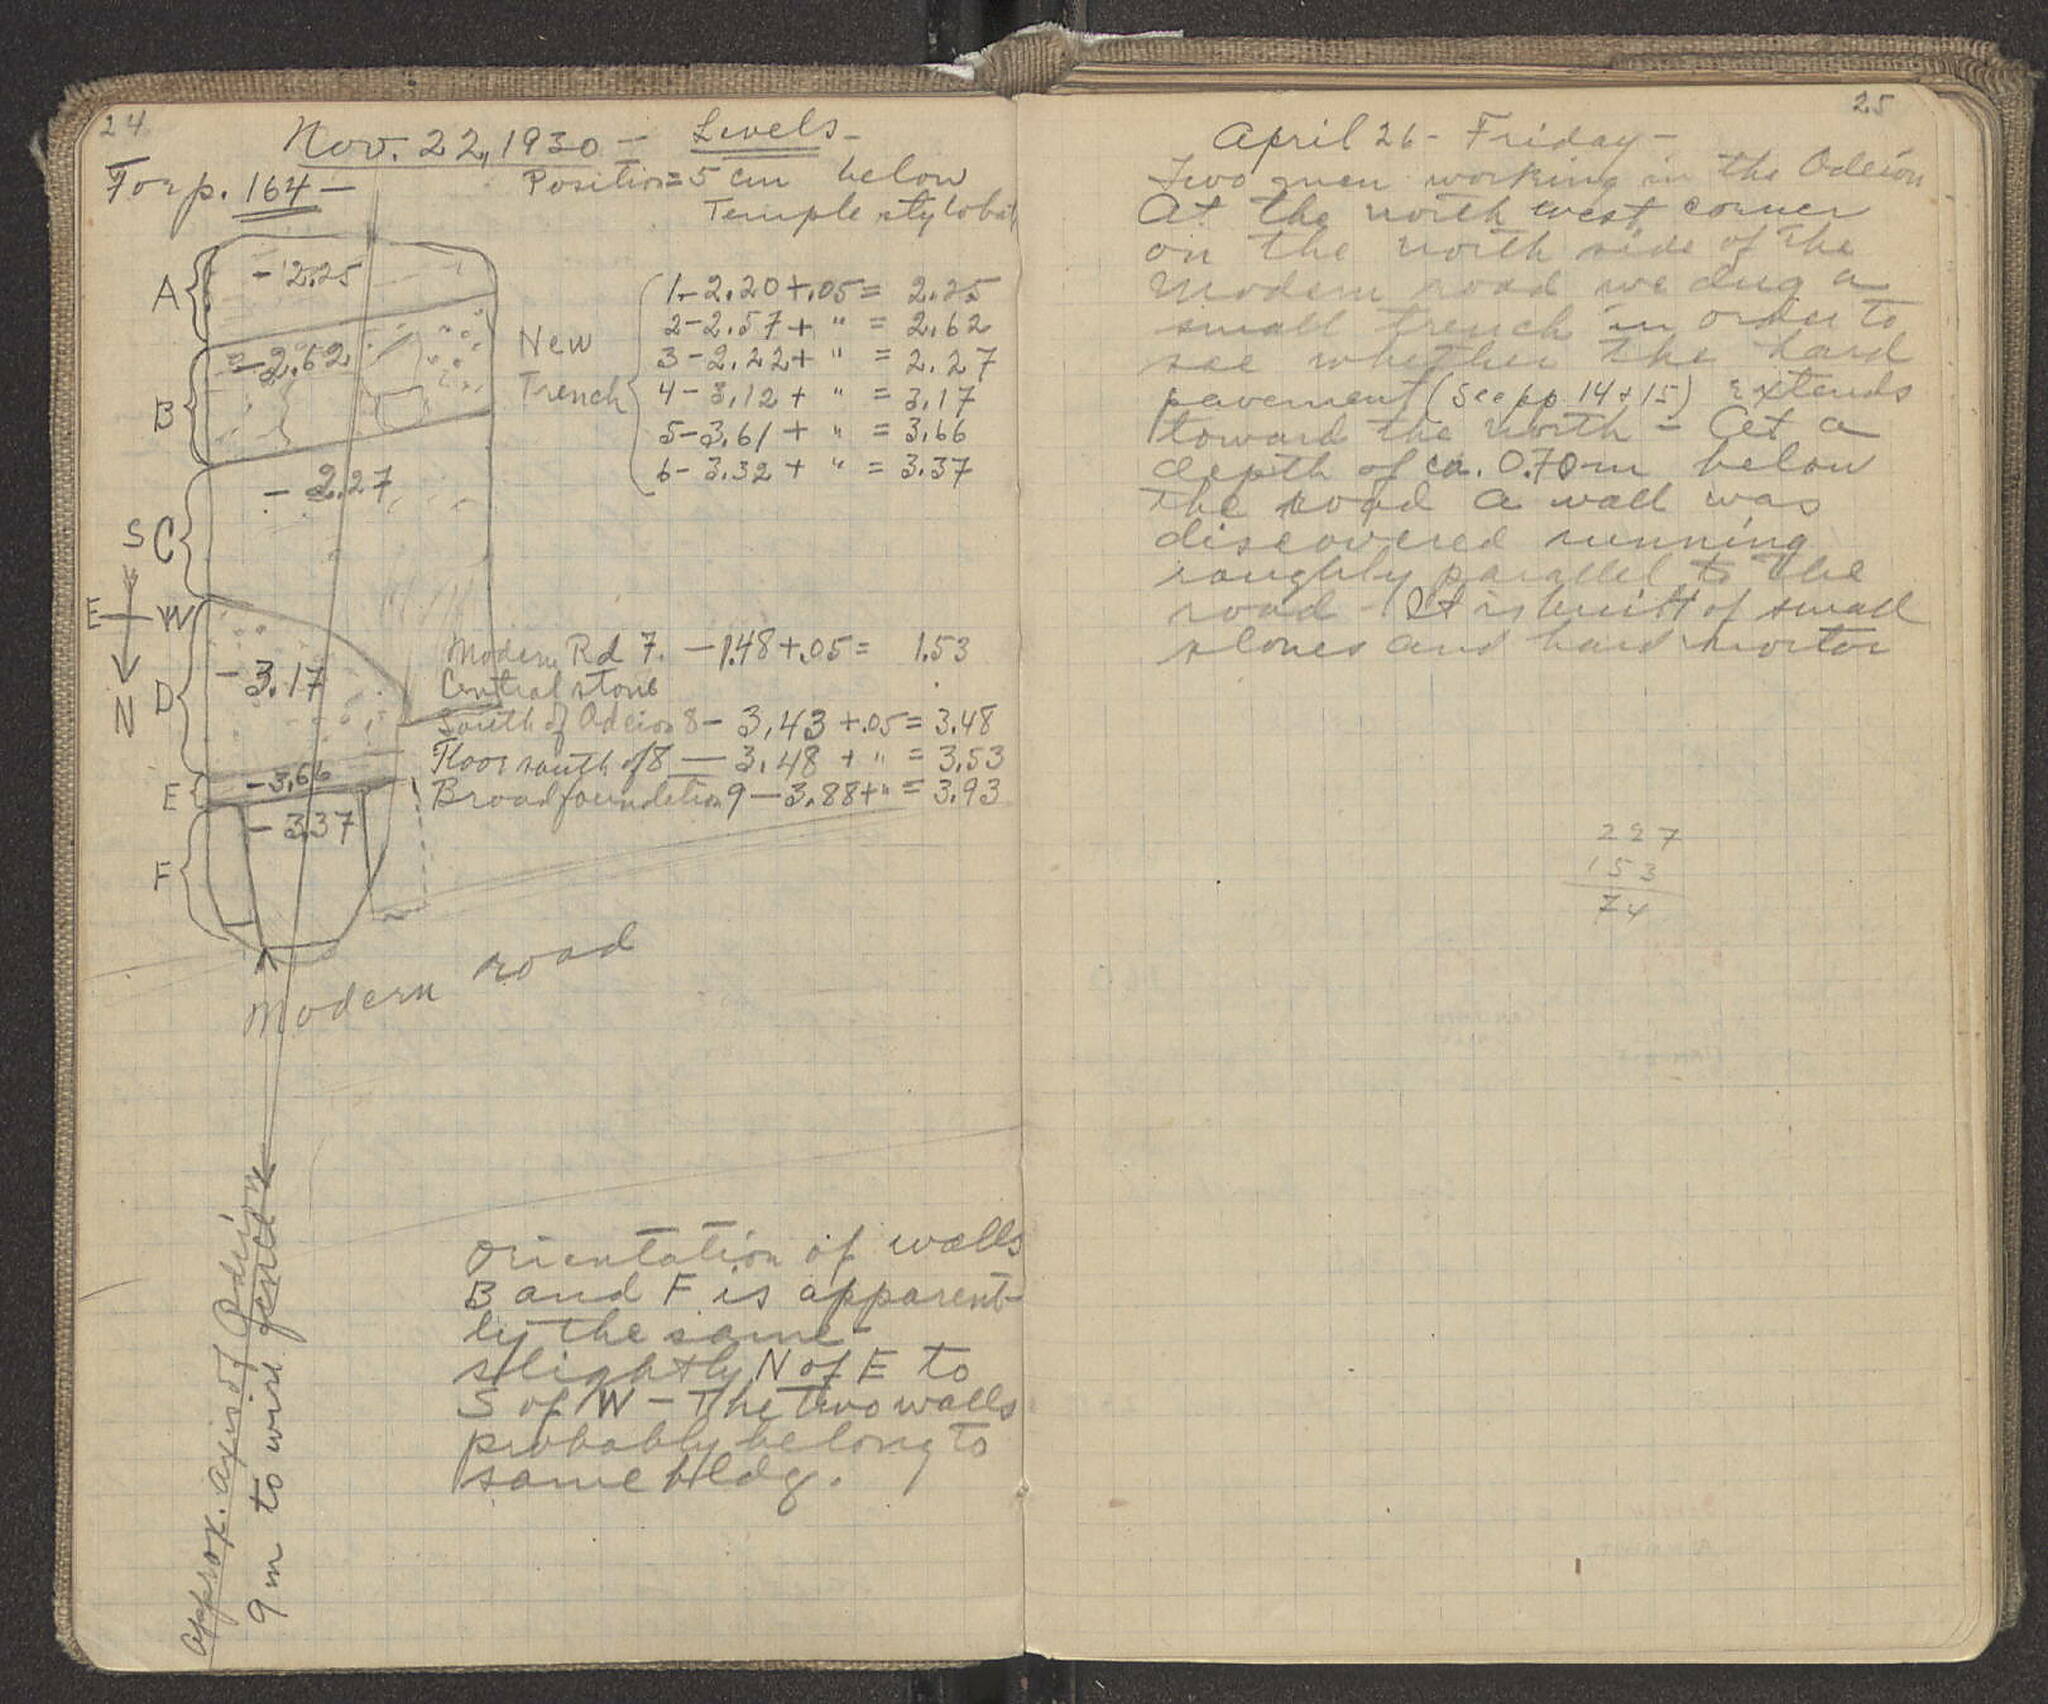 24
Nov. 22, 1930 – Levels –
For p. 164 –
Position = 5 cm below
Temple stylobat
A
- 2.25
B
- 2.62
C
- 2.27
D
- 3.17
E
- 3.66
F
- 3.37
S
E W
N
New
Trench
1 - 2.20 + .05 = 2.25
2 - 2.57 + " = 2.62
3 - 2.22 + " = 2.27
4 - 3.12 + " = 3.17
5 - 3.61 + " = 3.66
6 - 3.32 + " = 3.37
Modern Rd 7. - 1.48 + .05 = 1.53
Central stone
South of Odeion 8 - 3.43 + .05 = 3.48
Floor south of 8 — 3.48 + " = 3.53
Broad foundation 9 — 3.88 + " = 3.93
Modern road
Approx. axis of Odeion
9 m to wire fence
Orientation of walls
B and F is apparent-
ly the same –
slightly N of E to
S of W – The two walls
probably belong to
same bldg.
25
April 26 – Friday –
Two men working in the Odeion
At the north west corner
on the north side of the
modern road we dug a
small trench in order to
see whether the hard
pavement (See pp 14 + 15) extends
toward the north – At a
depth of ca. 0.70 m below
the road a wall was
discovered running
roughly parallel to the
road – It is built of small
stones and hard mortar
227
153
74